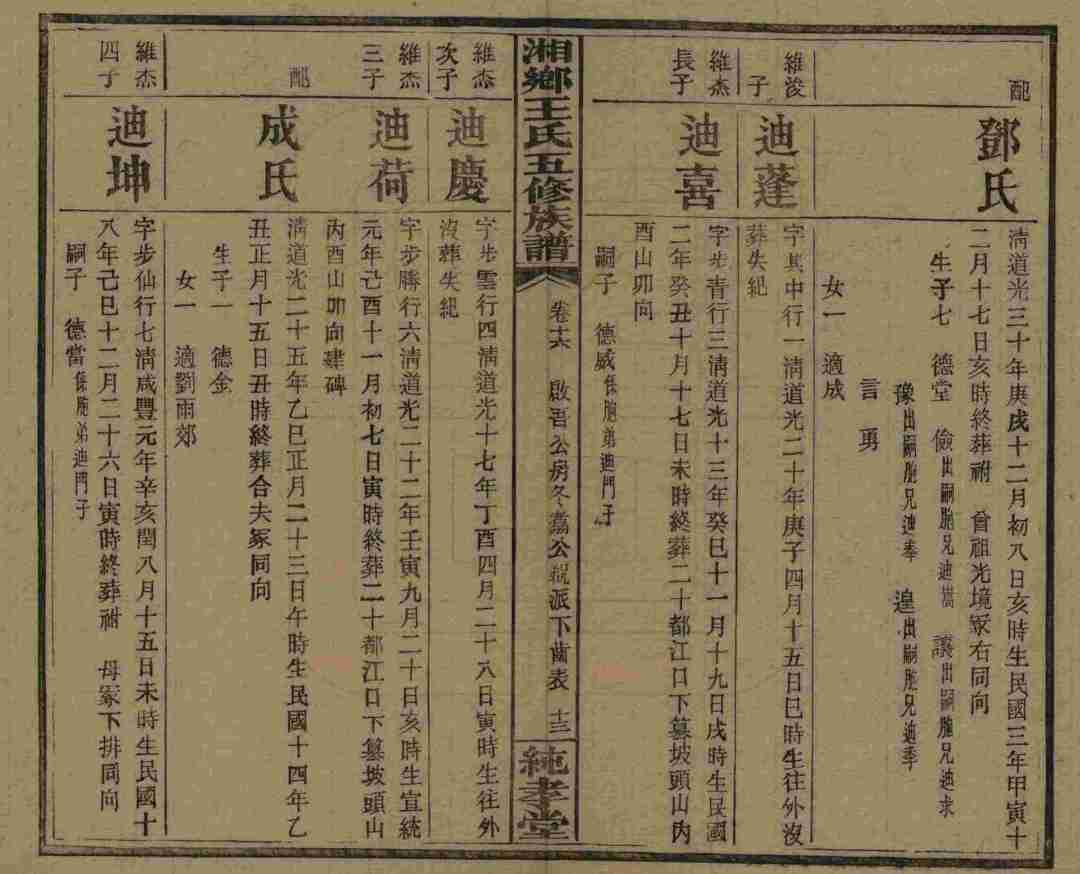 配
鄧氏
清道光三十年庚戌十二月初八日亥時生民國三年甲寅十
二月十七日亥時終葬祔 曾祖光境冢右同向
生子七 德堂 儉出嗣胞兄迪嵩 讓出嗣胞兄迪求
豫出嗣胞兄迪奉 遑出嗣胞兄迪季
言 勇
女一 適成
維浚
子
迪蓬
字其中行一清道光二十年庚子四月十五日巳時生往外沒
葬失紀
維杰
長子
迪喜
字步青行三清道光十三年癸巳十一月十九日戌時生民國
二年癸丑十月十七日未時終葬二十都江口下篡坡頭山丙
酉山卯向
嗣子 德威係胞弟迪門子
湘鄉王氏五修族譜
卷十六 啟吾公房冬嵩公 派下齒表 十三
純孝堂
維杰
次子
迪慶
字步雲行四清道光十七年丁酉四月二十八日寅時生往外
沒葬失紀
維杰
三子
迪荷
字步勝行六清道光二十二年壬寅九月二十日亥時生宣統
元年己酉十一月初七日寅時終葬二十都江口下篡坡頭山
丙酉山卯向建碑
配
成氏
清道光二十五年乙巳正月二十三日午時生民國十四年乙
丑正月十五日丑時終葬合夫冢同向
生子一 德金
女一 適劉雨郊
維杰
四子
迪坤
字步仙行七清咸豐元年辛亥閏八月十五日未時生民國十
八年己巳十二月二十六日寅時終葬祔 母冢下排同向
嗣子 德當係胞弟迪門子